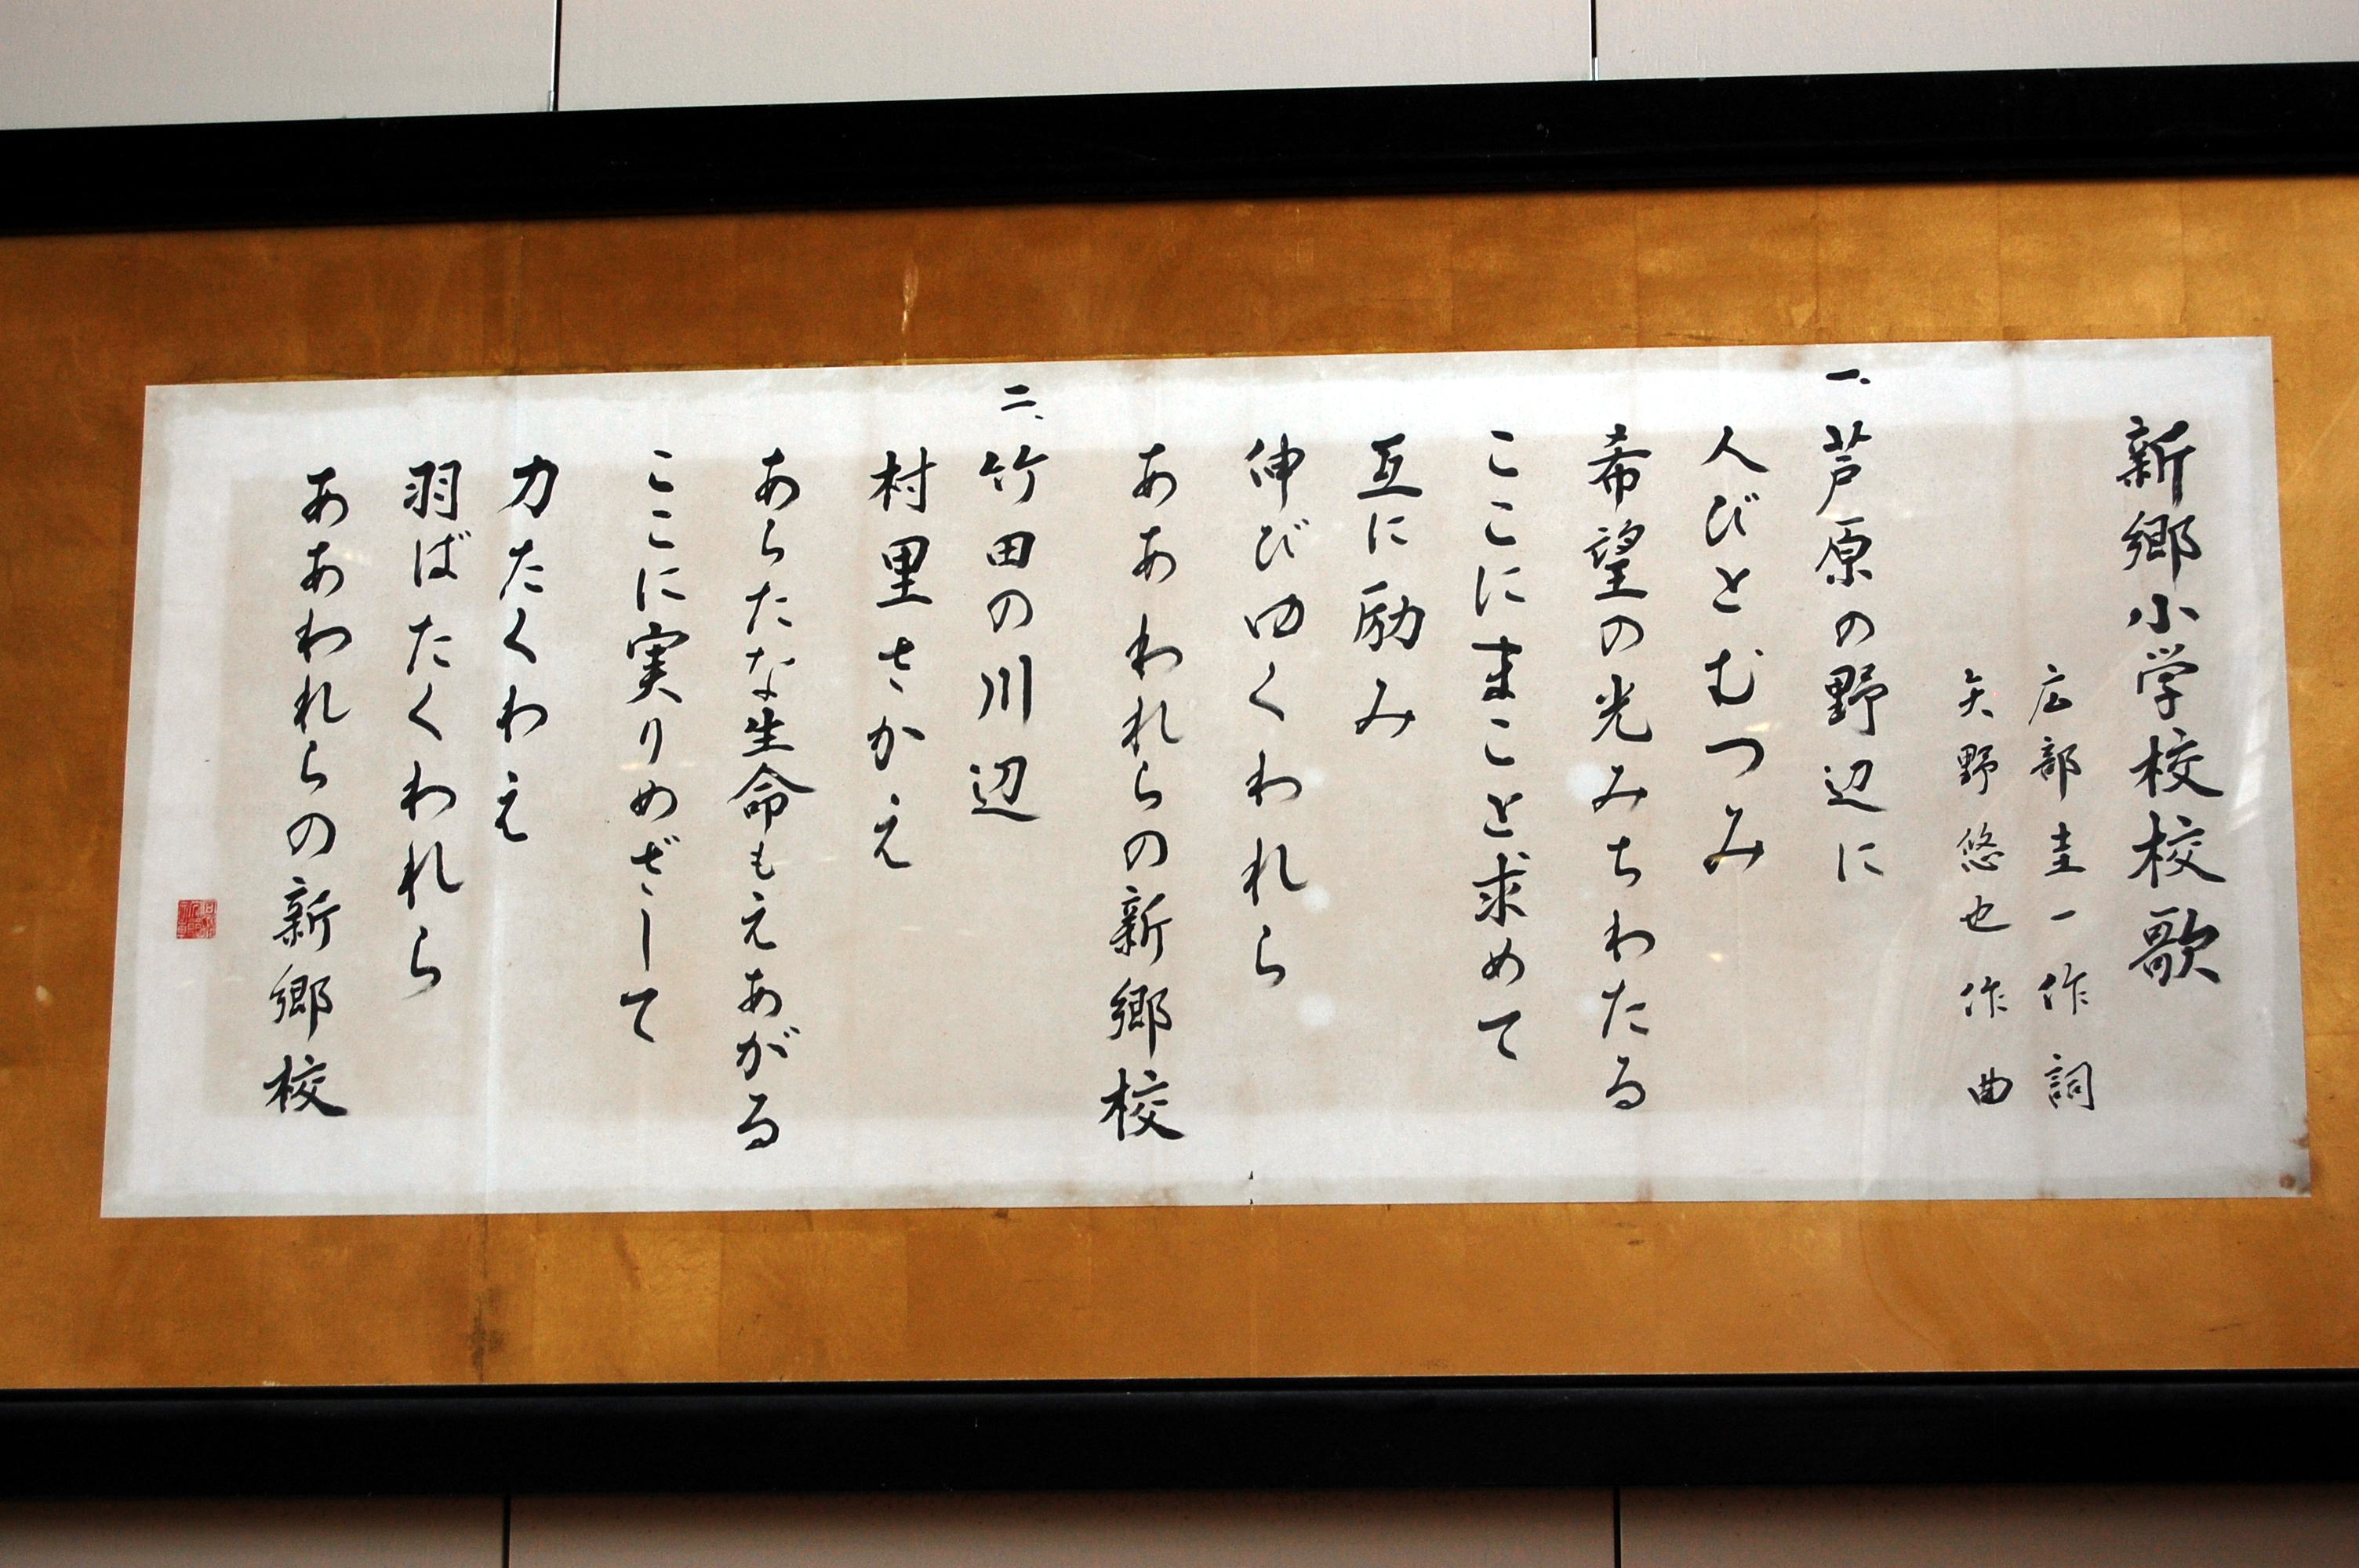 新郷小学校校歌
広部圭一作詞
矢野悠也作曲
一、芦原の野辺に
人びとむつみ
希望の光みちわたる
ここにまこと求めて
互に励み
伸びゆくわれら
ああわれらの新郷校
二、竹田の川辺
村里さかえ
あらたな生命もえあがる
ここに実りめざして
力たくわえ
羽ばたくわれら
ああわれらの新郷校